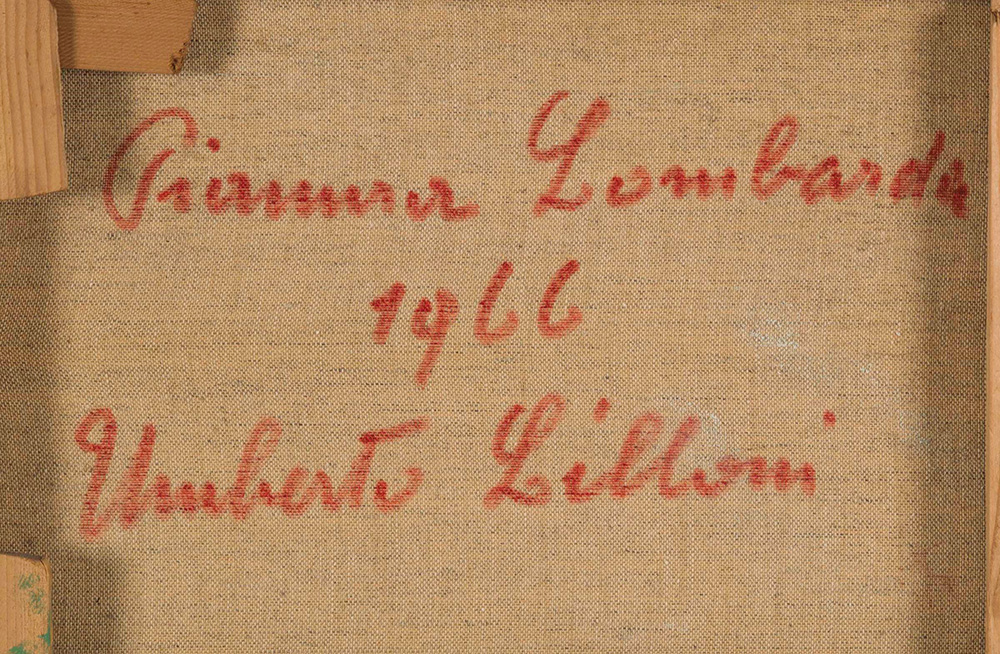 Pianura Lombarda
1966
Umberto Lilloni